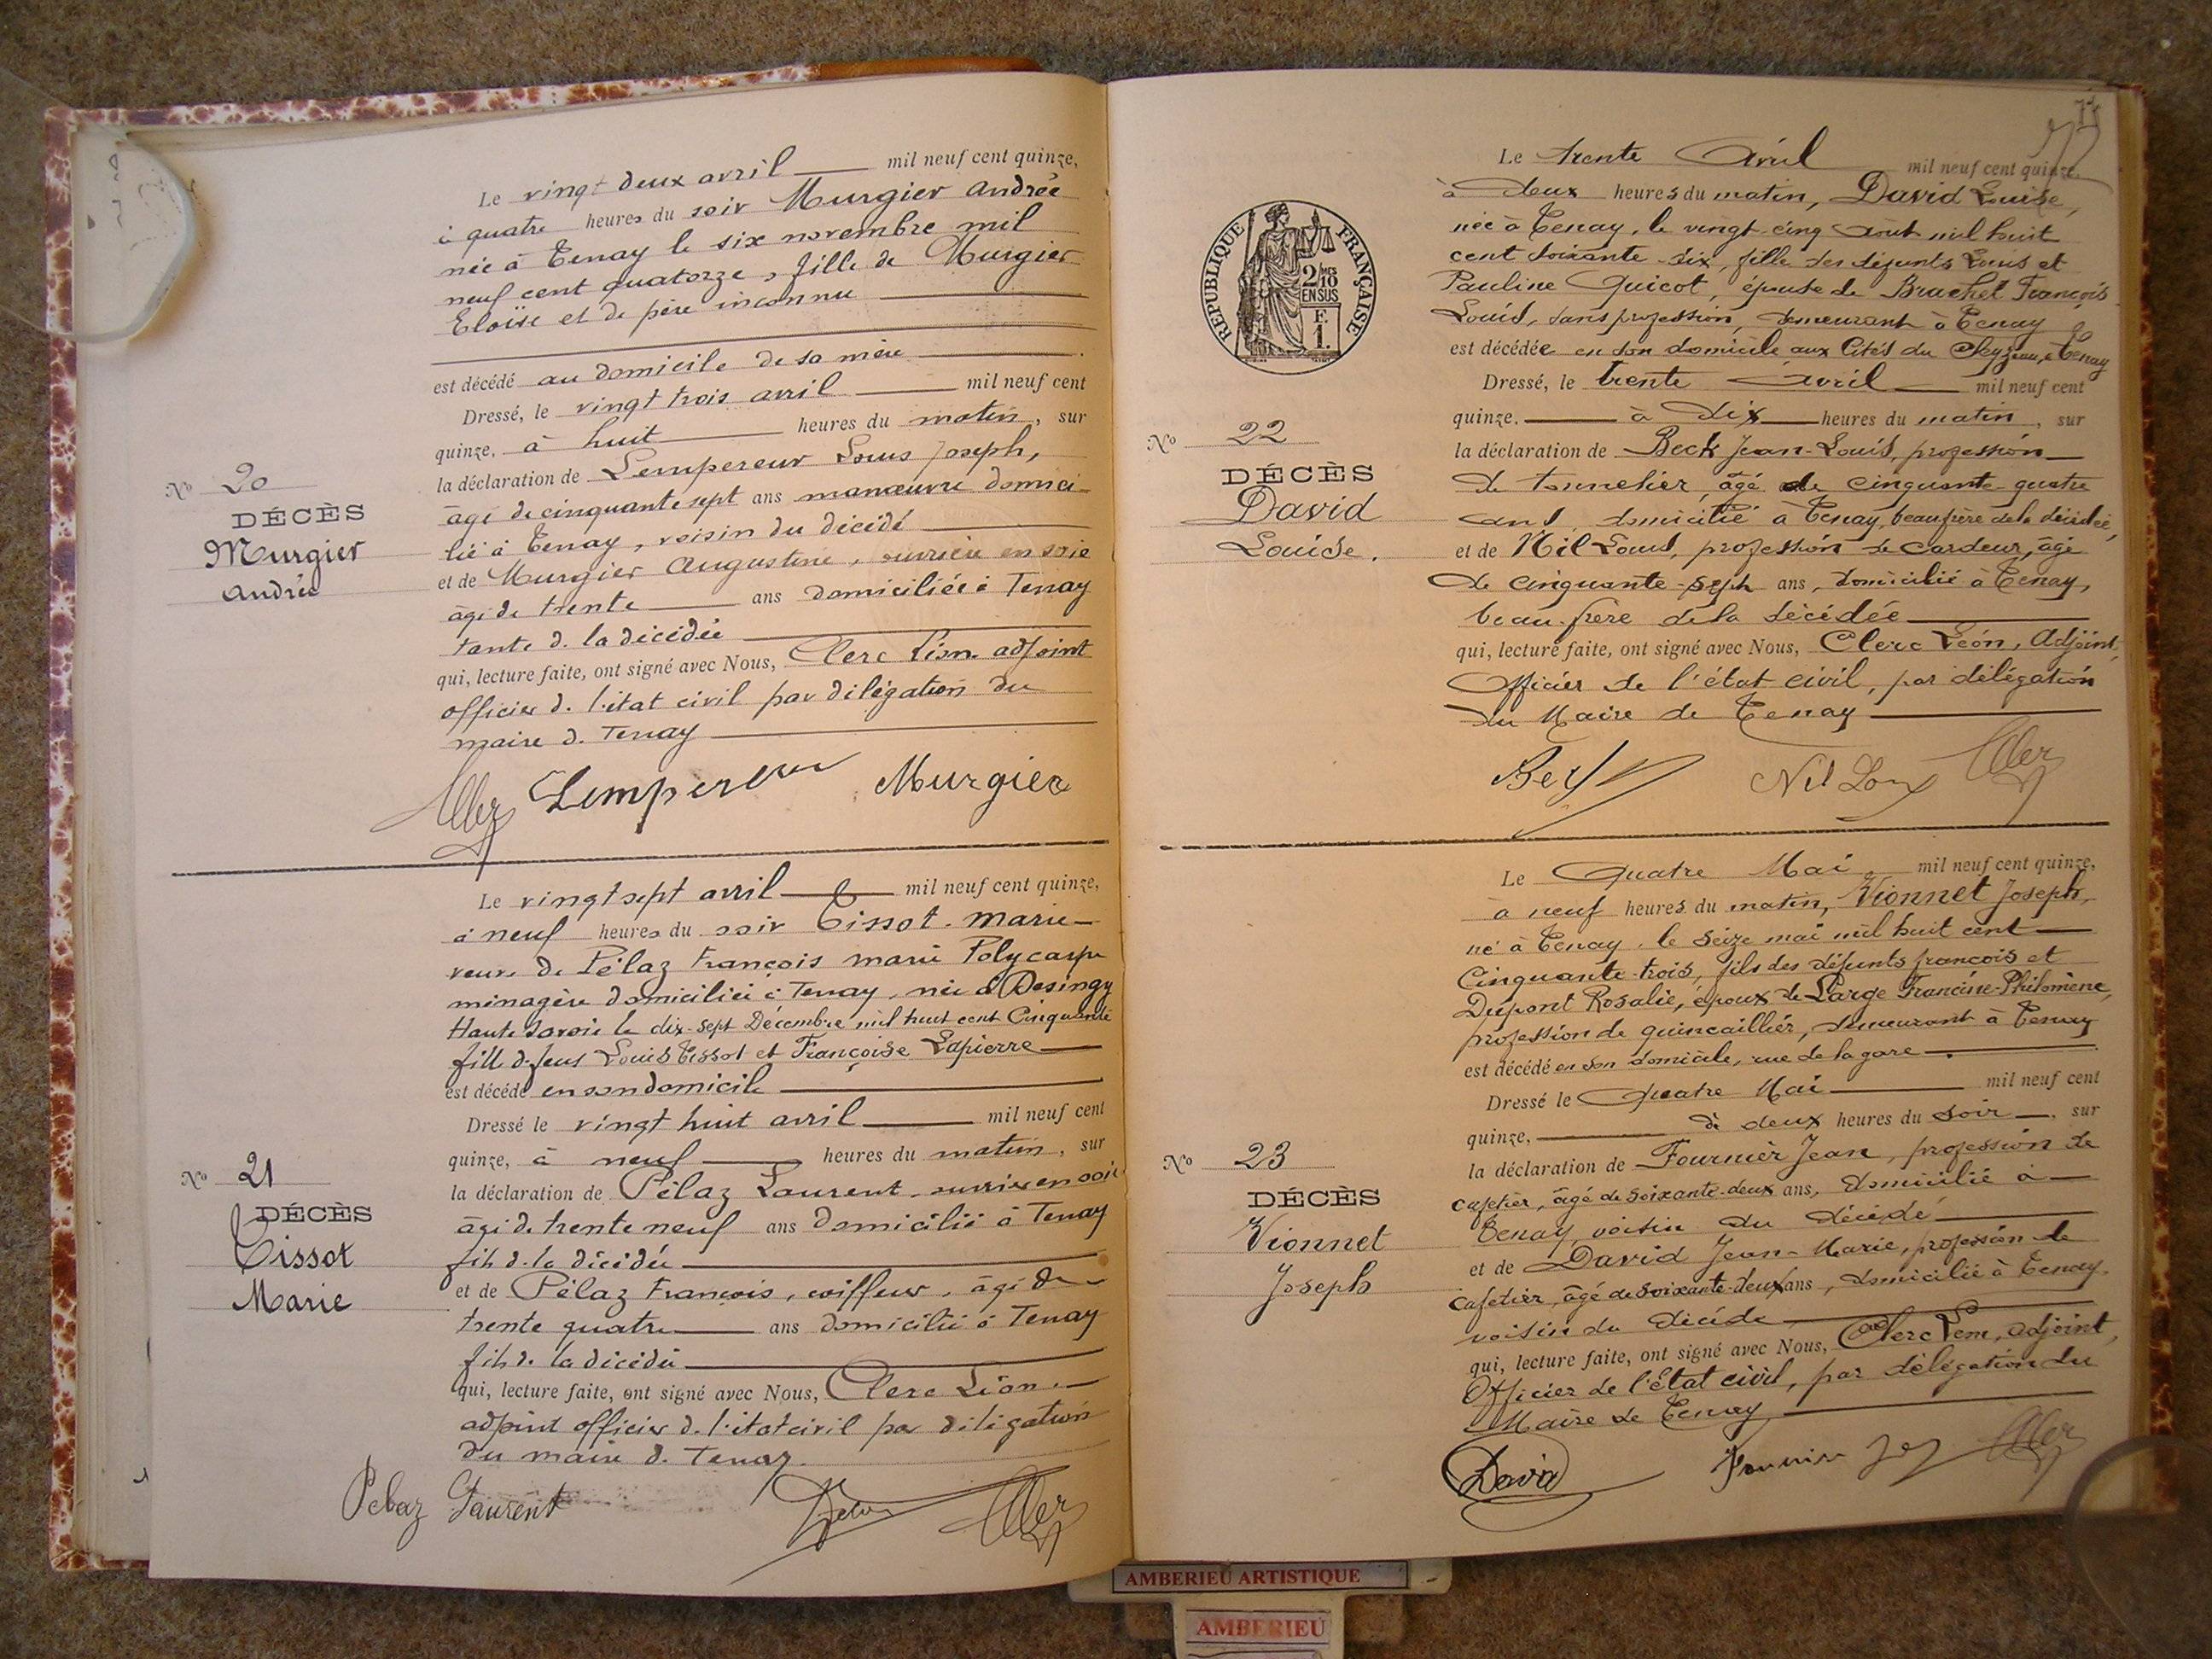 Le vingt deux avril mil neuf cent quinze,
à quatre heures du soir Murgier Andrée
née à Tenay le six novembre mil
neuf cent quatorze, fille de Murgier
Eloïse et de père inconnu
est décédé au domicile de sa mère
Dressé, le vingt trois avril mil neuf cent
quinze, à huit heures du matin, sur
la déclaration de Lempereur Louis Joseph,
âgé de cinquante sept ans manœuvre domici
lié à Tenay, voisin du décédé
et de Murgier Augustine, ouvrière en soie
âgé de trente ans domiciliée à Tenay
tante de la décédée
qui, lecture faite, ont signé avec Nous, Clerc Léon adjoint
officier de l'état civil par délégation du
maire de Tenay
Lempereur Murgier
No 20
DÉCÈS
Murgier
Andrée
Le vingt sept avril mil neuf cent quinze,
à neuf heures du soir Tissot Marie
veuve de Pélaz François Marie Polycarpe
ménagère domiciliée à Tenay, née à Desingy
Haute Savoie le dix-sept Décembre mil huit cent Cinquante
fille de feus Louis Tissot et Françoise Lapierre
est décédé en son domicile
Dressé le vingt huit avril mil neuf cent
quinze, à neuf heures du matin, sur
la déclaration de Pélaz Laurent, ouvrier en soie
âgé de trente neuf ans domicilié à Tenay
fils de la décédée
et de Pélaz François, coiffeur, âgé de
trente quatre ans domicilié à Tenay
fils de la décédée
qui, lecture faite, ont signé avec Nous, Clerc Léon
adjoint officier de l'état civil par délégation
du maire de Tenay.
Pelaz Laurent
No 21
DÉCÈS
Tissot
Marie
74
RÉPUBLIQUE FRANÇAISE
2/10MES
EN SUS
F.
1.
Le trente Avril mil neuf cent quinze
à deux heures du matin, David Louise,
née à Tenay, le vingt-cinq Août mil huit
cent soixante-dix, fille des défunts Louis et
Pauline Quicot, épouse de Brachet François
Louis, sans profession, demeurant à Tenay
est décédée en son domicile aux Cités du à Tenay
Dressé, le trente Avril mil neuf cent
quinze. à dix heures du matin, sur
la déclaration de Beck Jean-Louis, profession
de tonnelier, âgé de cinquante-quatre
ans, domicilié à Tenay, beau frère de la décédée,
et de Nil Louis, profession de cardeur, âgé
de cinquante-sept ans, domicilié à Tenay,
beau-frère de la décédée
qui, lecture faite, ont signé avec Nous, Clerc Léon, Adjoint,
Officier de l'état civil, par délégation
du Maire de Tenay
Nil Louis
No 22
DÉCÈS
David
Louise.
Le Quatre Mai mil neuf cent quinze,
à neuf heures du matin, Vionnet Joseph,
né à Tenay, le seize mai mil huit cent
Cinquante-trois, fils des défunts françois et
Dupont Rosalie, époux de Large Francine-Philomène,
profession de quincaillier, demeurant à Tenay
est décédé en son domicile, rue de la gare
Dressé le Quatre Mai mil neuf cent
quinze, à deux heures du soir, sur
la déclaration de Fournier Jean, profession de
cafetier, âgé de soixante-deux ans, domicilié à
Tenay, voisin du décédé
et de David Jean-Marie, profession de
cafetier, âgé de soixante-deux ans, domicilié à Tenay,
voisin du décédé
qui, lecture faite, ont signé avec Nous, Clerc Léon, adjoint,
Officier de l'état civil, par délégation du
Maire de Tenay
David Fournier
No 23
DÉCÈS
Vionnet
Joseph
AMBERIEU ARTISTIQUE
AMBERIEU